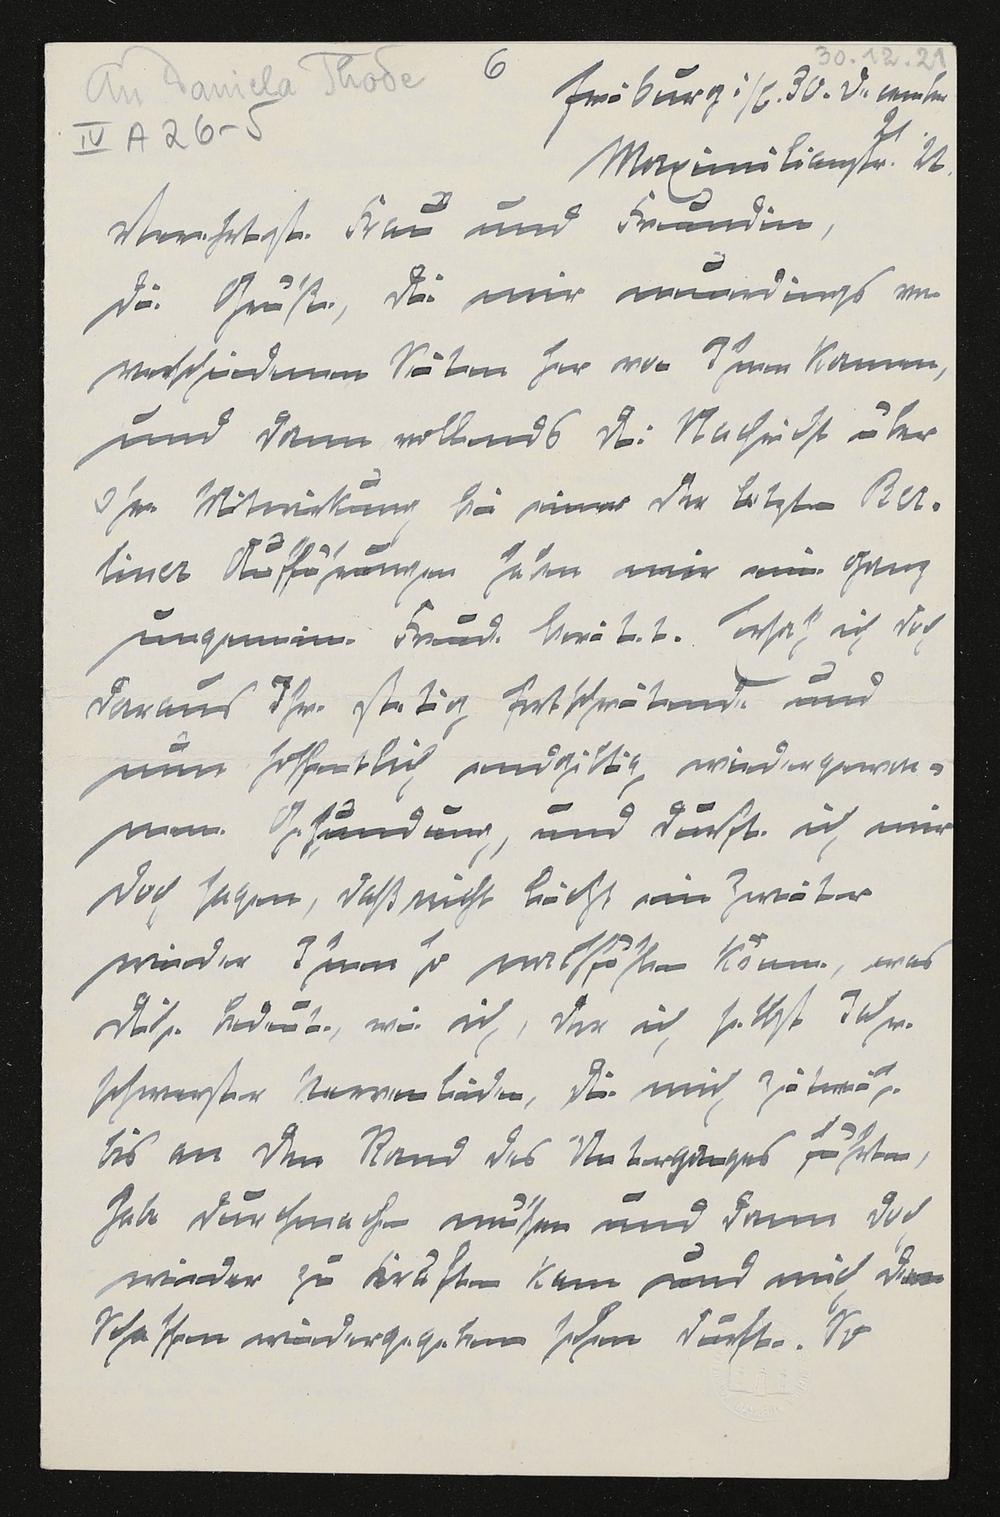 An Daniela Thode
6
30.12.21
IV A 26-5
Freiburg i/B. 30. Dezember
21.
Maximilianstr. 22.
Verehrteste Frau und Freundin,
die Grüße, die mir neuerdings von
verschiedenen Seiten her von Ihnen kamen,
und dann vollends die Nachricht über
Ihre Mitwirkung bei einer der letzten Ber-
liner Aufführungen haben mir eine ganz
ungemeine Freude bereitet. Ersah ich doch
daraus Ihre stetig fortschreitende und
nun hoffentlich endgiltig wiedergewon-
nene Gesundung, und durfte ich mir
doch sagen, daß nicht leicht ein Zweiter
wieder Ihnen so nachfühlen könne, was
dies bedeute, wie ich, der ich selbst Jahre
schwerster Nervenleiden, die mich zeitweise
bis an den Rand des Unterganges führten,
habe durchmachen müssen und dann doch
wieder zu Kräften kam und mich dem
Schaffen wiedergegeben sehen durfte. So